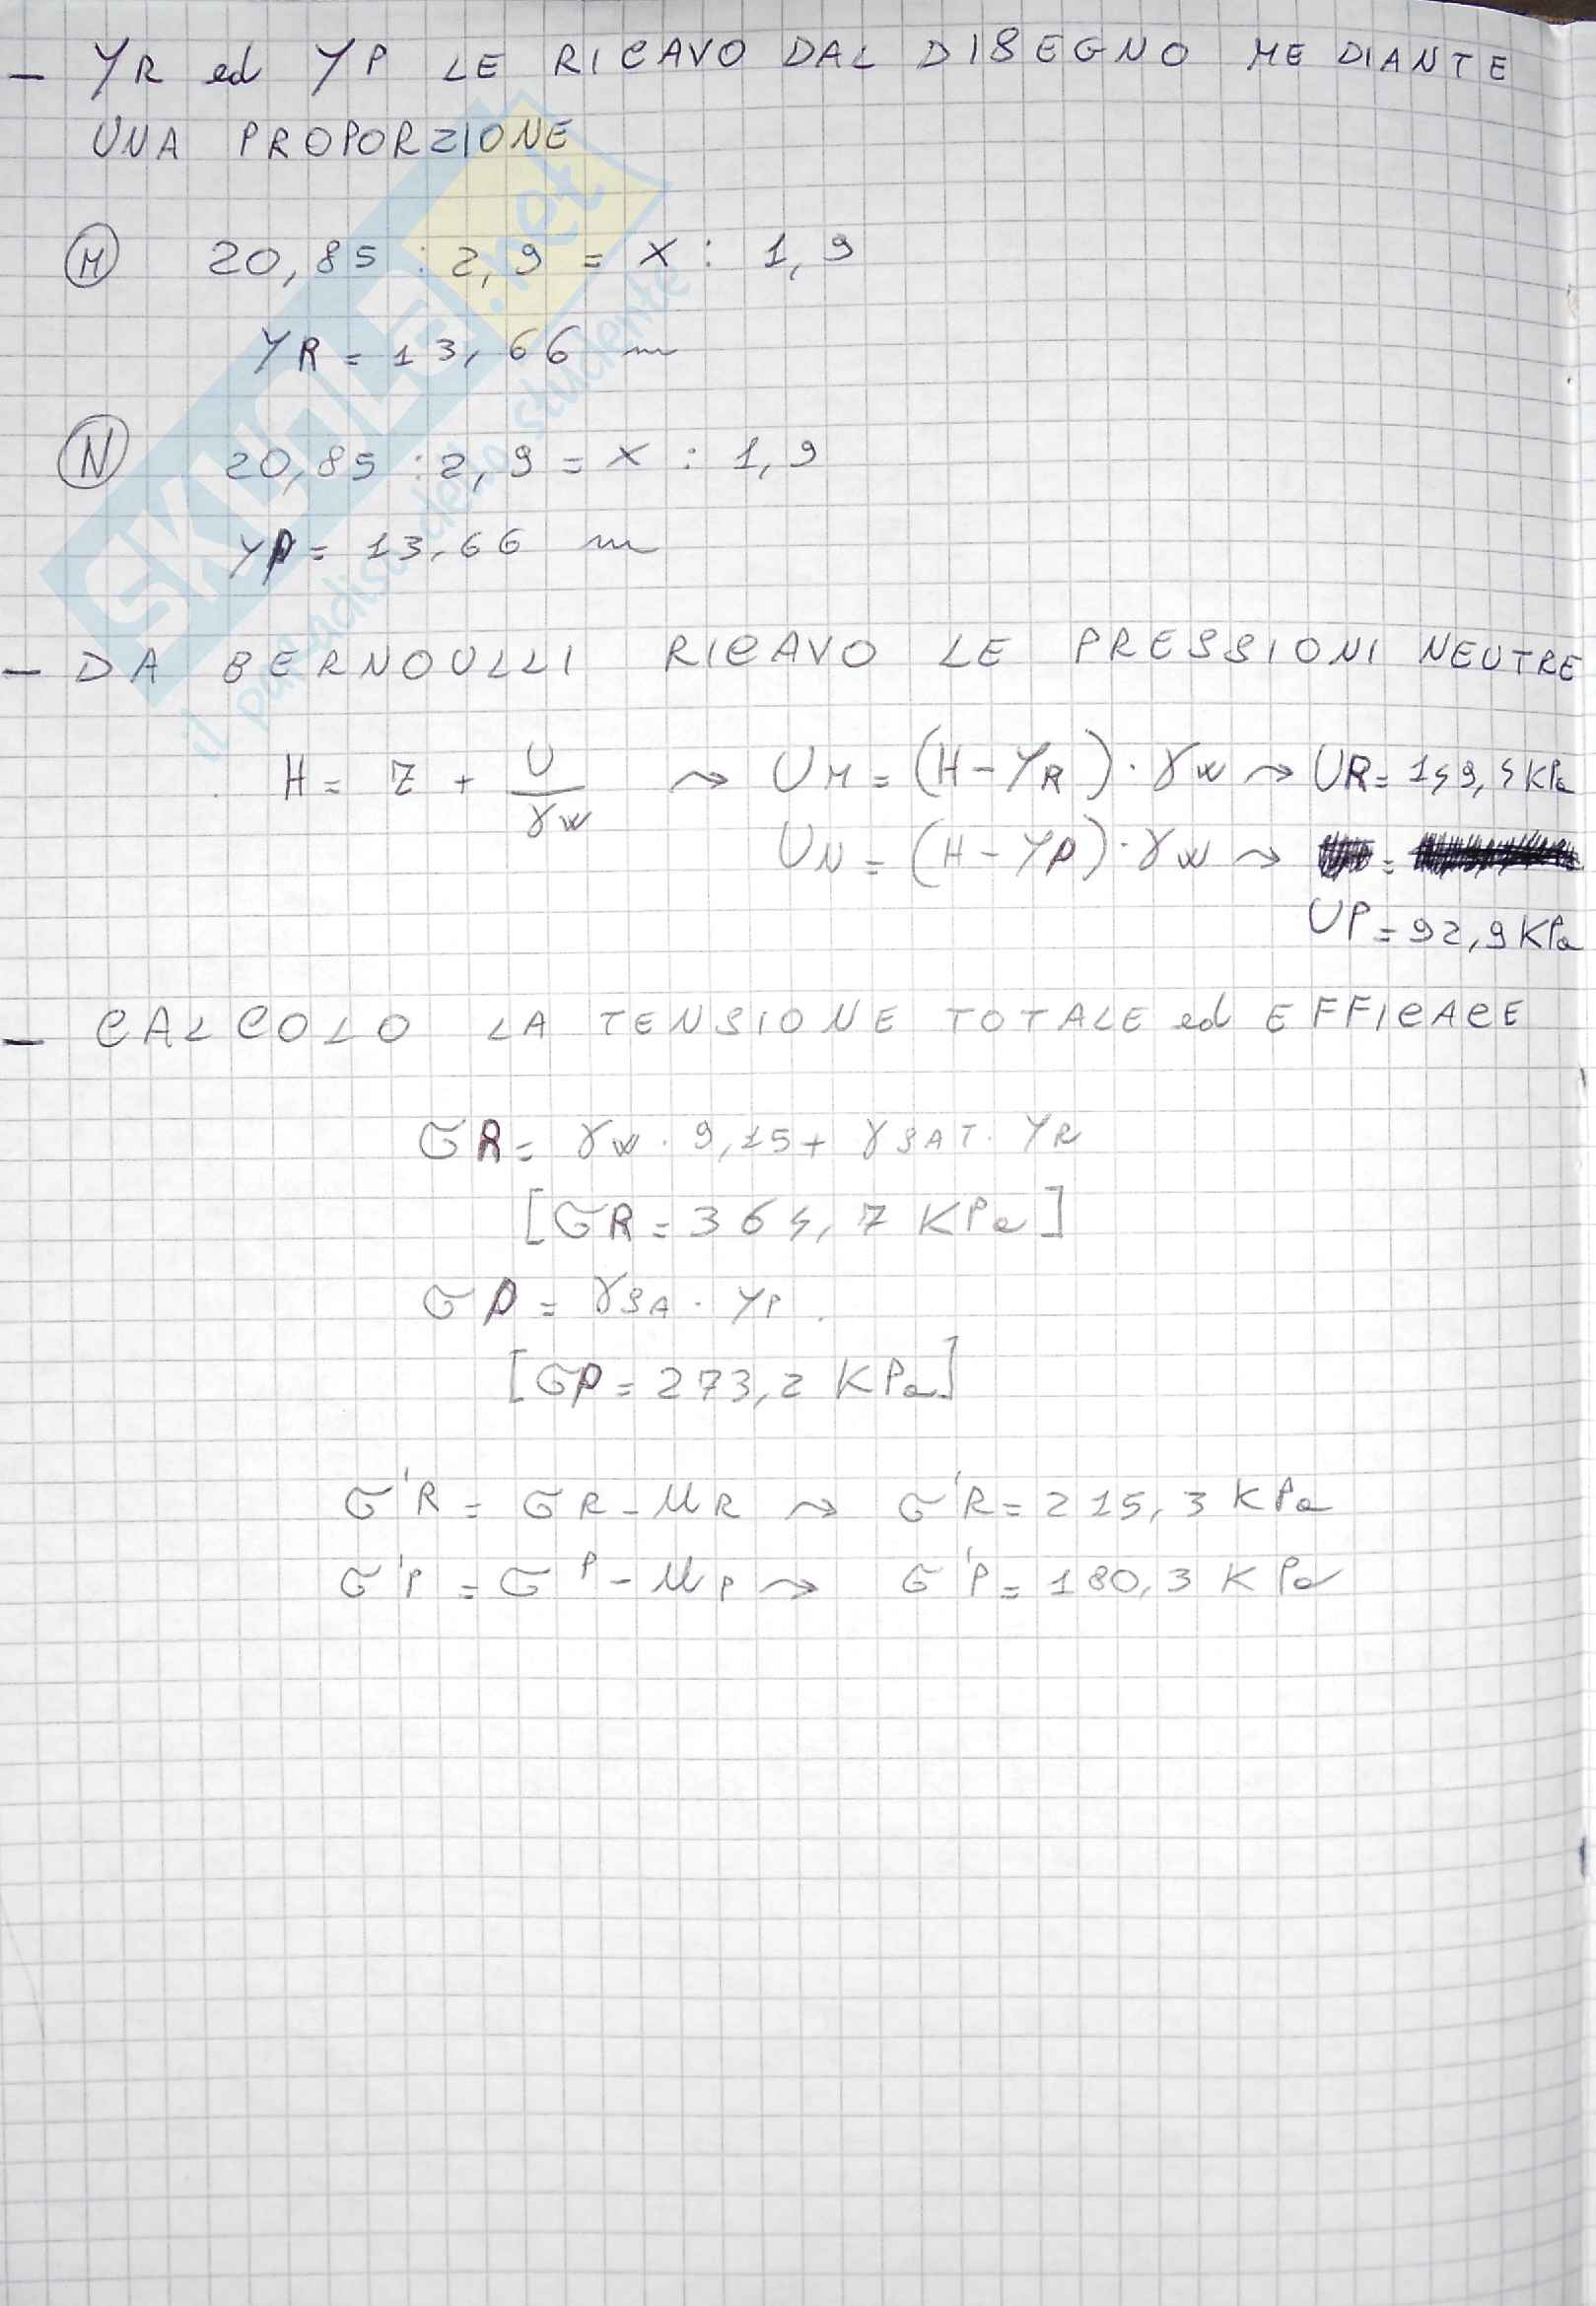 - YR ed YP LE RICAVO DAL DISEGNO MEDIANTE
UNA PROPORZIONE
M 20,85 : 2,9 = X : 1,9
YR = 13,66 m
N 20,85 : 2,9 = X : 1,9
YP = 13,66 m
- DA BERNOULLI RICAVO LE PRESSIONI NEUTRE
H = Z + U/γw ⇝ UM = (H - YR) · γw ⇝ UR = 149,4 KPa
UN = (H - YP) · γw ⇝
UP = 92,9 KPa
- CALCOLO LA TENSIONE TOTALE ed EFFICACE
σR = γw · 9,15 + γSAT · YR
[σR = 364,7 KPa]
σP = γSA · YP
[σP = 273,2 KPa]
σ'R = σR - μR ⇝ σ'R = 215,3 KPa
σ'P = σP - μP ⇝ σ'P = 180,3 KPa
SKUOLA.net
il paradiso dello studente